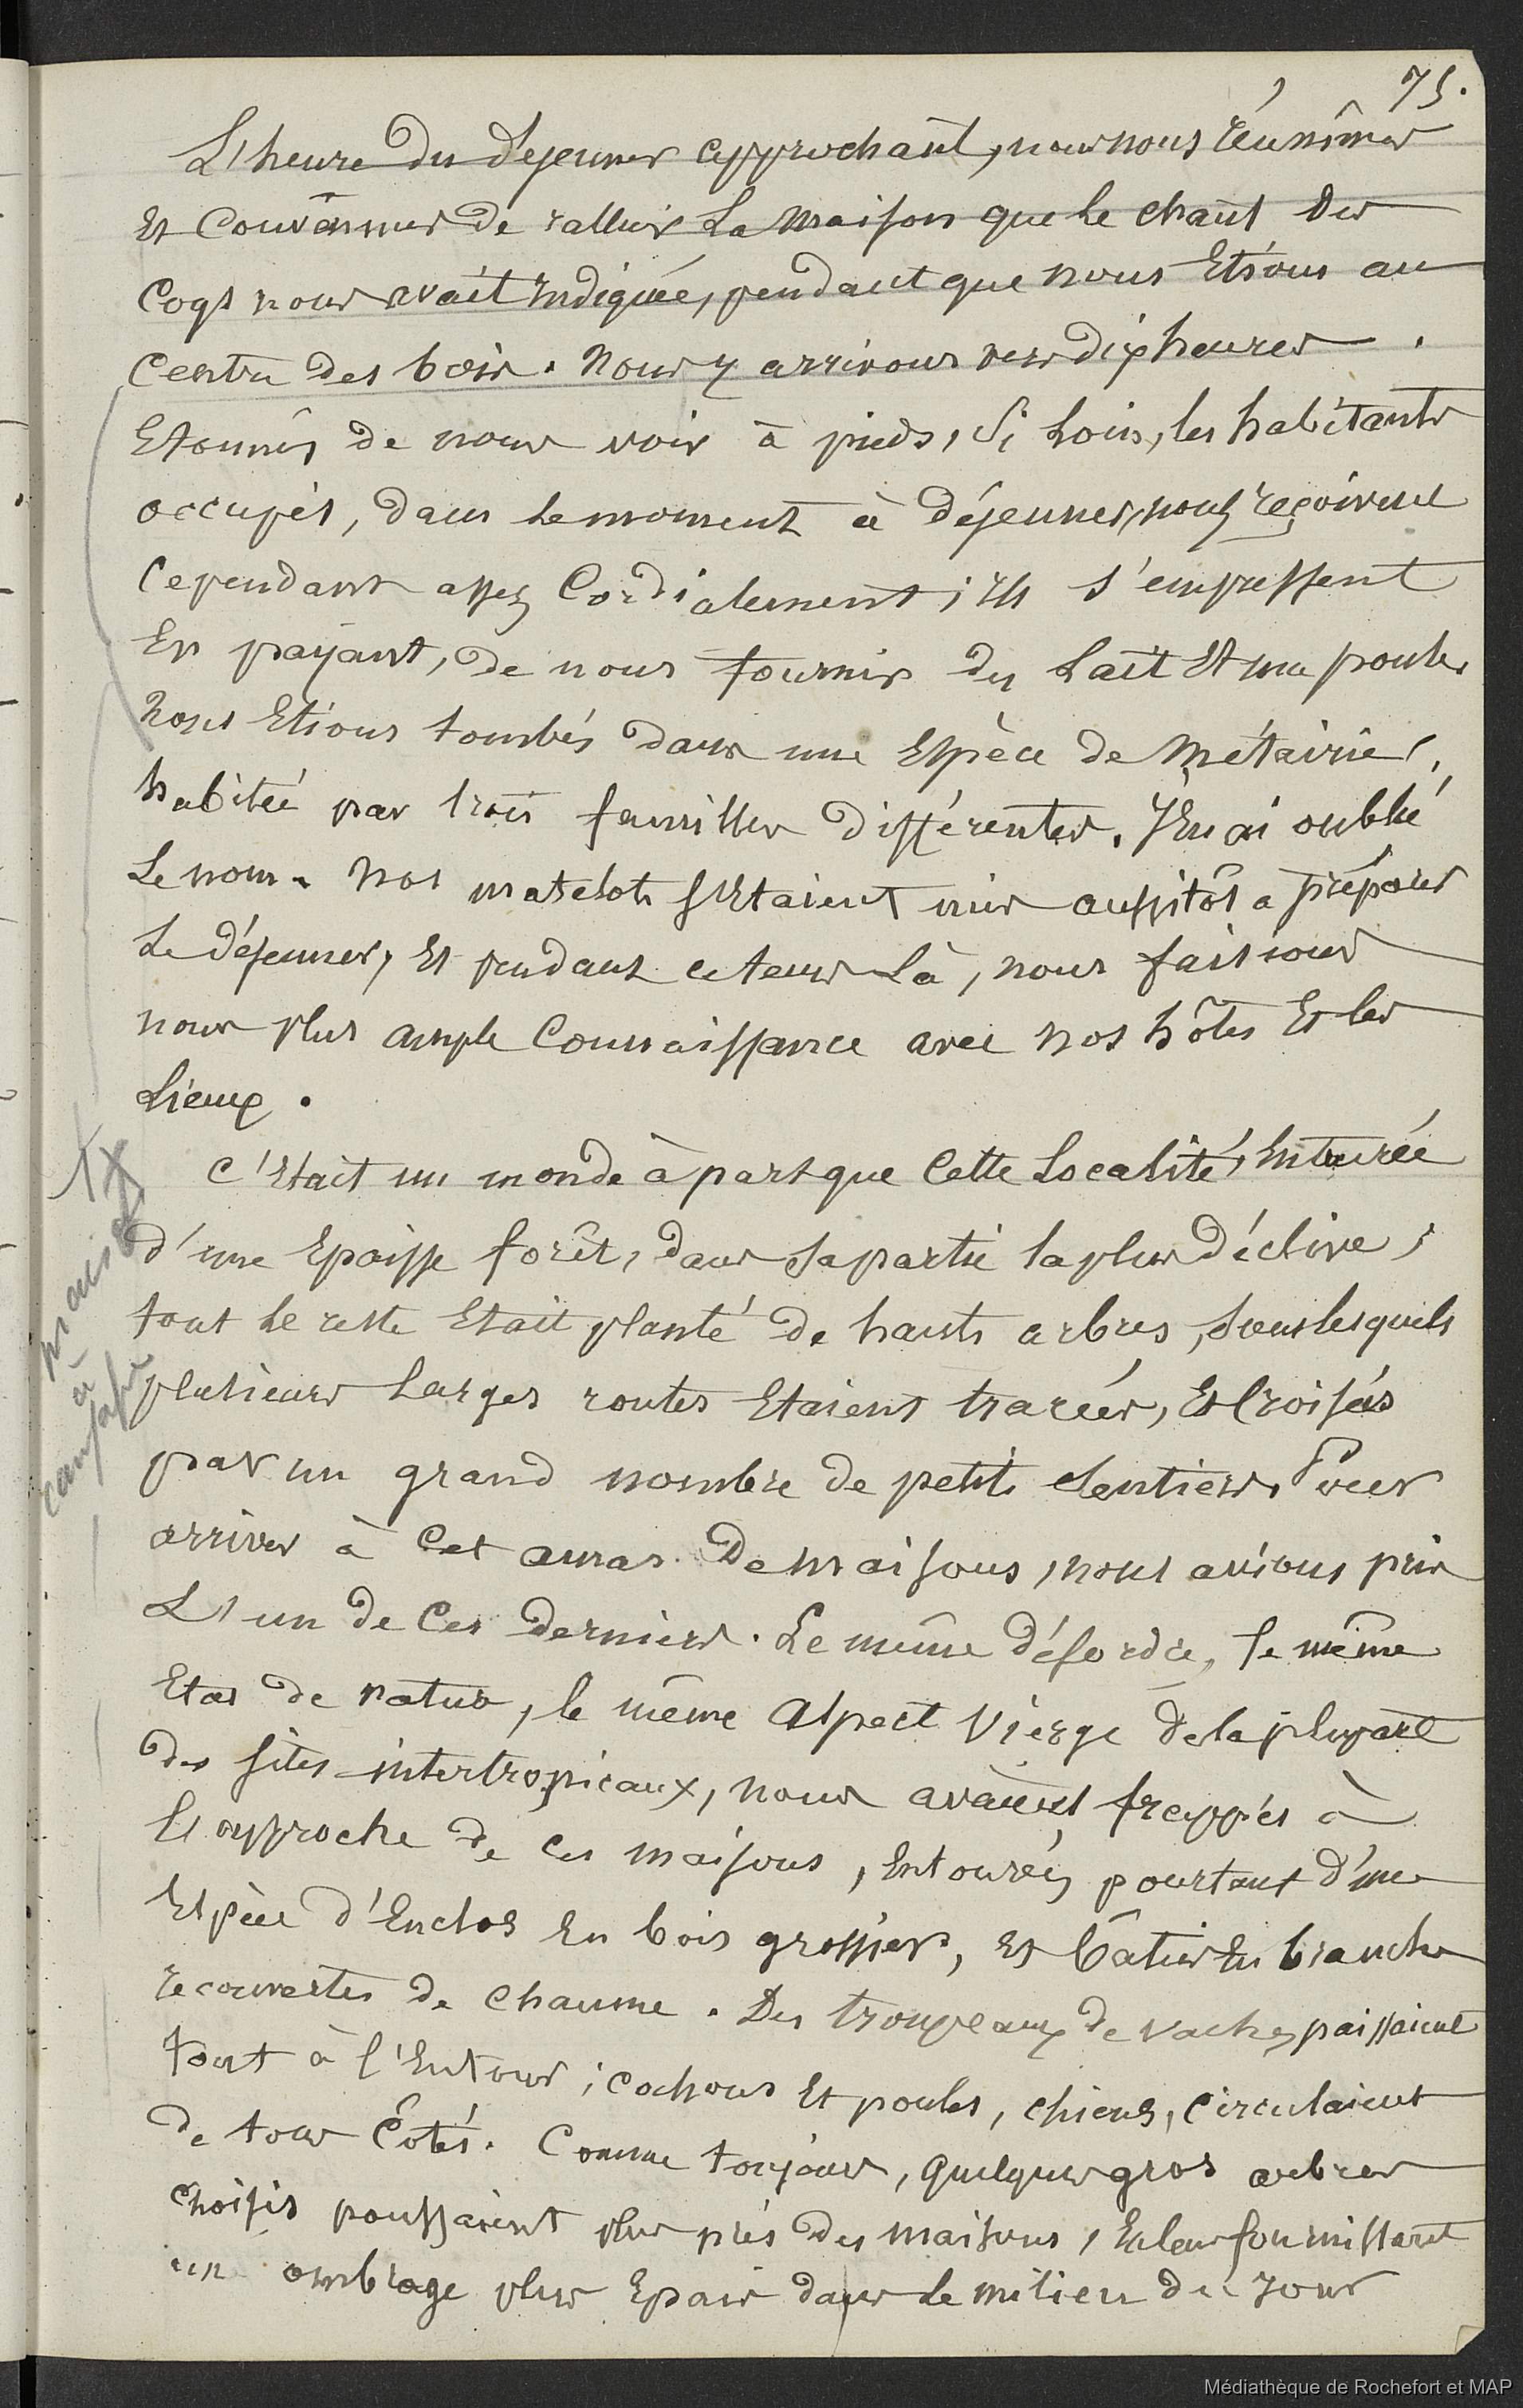 75.
L'heure du déjeuner approchant, nous nous réunîmes
Et Convînmes de rallier La Maison que le chant des
Coqs nous avait indiquée, pendant que nous Etions au
Centre des bois. Nous y arrivons vers dix heures.
Etonnés de nous voir à pieds, Si Loin, les habitants
occupés, dans le moment à déjeuner, nous reçoivent
Cependant assez Cordialement; ils s'empressent
En payant, de nous fournir du Lait Et une poule,
Nous Etions tombés dans une Espèce de Métairie,
habitée par trois familles différentes. J'En ai oublié
Le nom. Nos matelots s'Etaient mis aussitôt a préparer
Le déjeuner, Et pendant ce tems Là, nous faisions
nous plus ample Connaissance avec nos hôtes Et les
Lieux.
C'Etait un monde à part que Cette Localité, Entourée
d'une Epaisse forêt, dans Sa partie la plus déclive;
tout le reste Etait planté de hauts arbres, Sous lesquels
plusieurs Larges routes Etaient tracées, Et Croisées
par un grand nombre de petits Sentiers. Pour
arriver à Cet amas De Maisons, nous avions pris
L'un de Ces Derniers. Le même désordre, le même
Etat de nature, le même Aspect Vierge de la plupart
des sites intertropicaux, nous avaient frappés à
l'approche de Ces Maisons, Entourées pourtant d'une
Espèce d'Enclos En bois grossier, Et bâties En branches
recouvertes de Chaume. Des troupeaux de vaches paissaient
tout à l'Entour; cochons Et poules, chiens, Circulaient
de tous Côtés. Comme toujours, quelques gros arbres
Choisis poussaient plus près des Maisons, En leur fournissant
un ombrage plus Epais dans Le milieu du Jour
maisons
à
Médiathèque de Rochefort et MAP